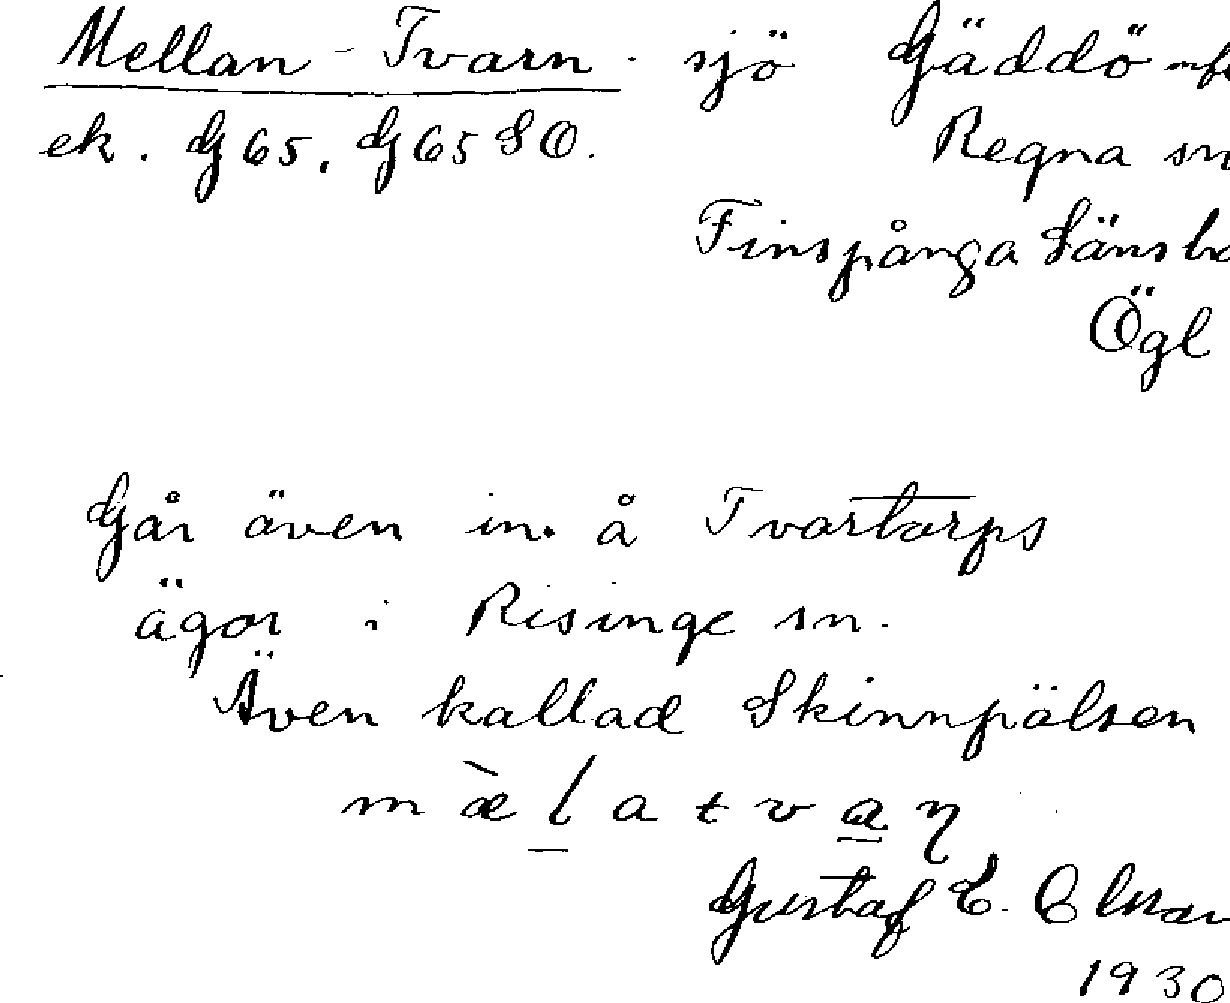 Mellan-Tvarn. sjö Gäddö
ek. G65, G65 SO. Regna sn
Finspånga Länsh
Ögl
Går även in å Tvartorps
ägor i Risinge sn.
Även kallad Skinnpälsen
m æ̀ l a t v a ŋ
Gustaf E.
1930